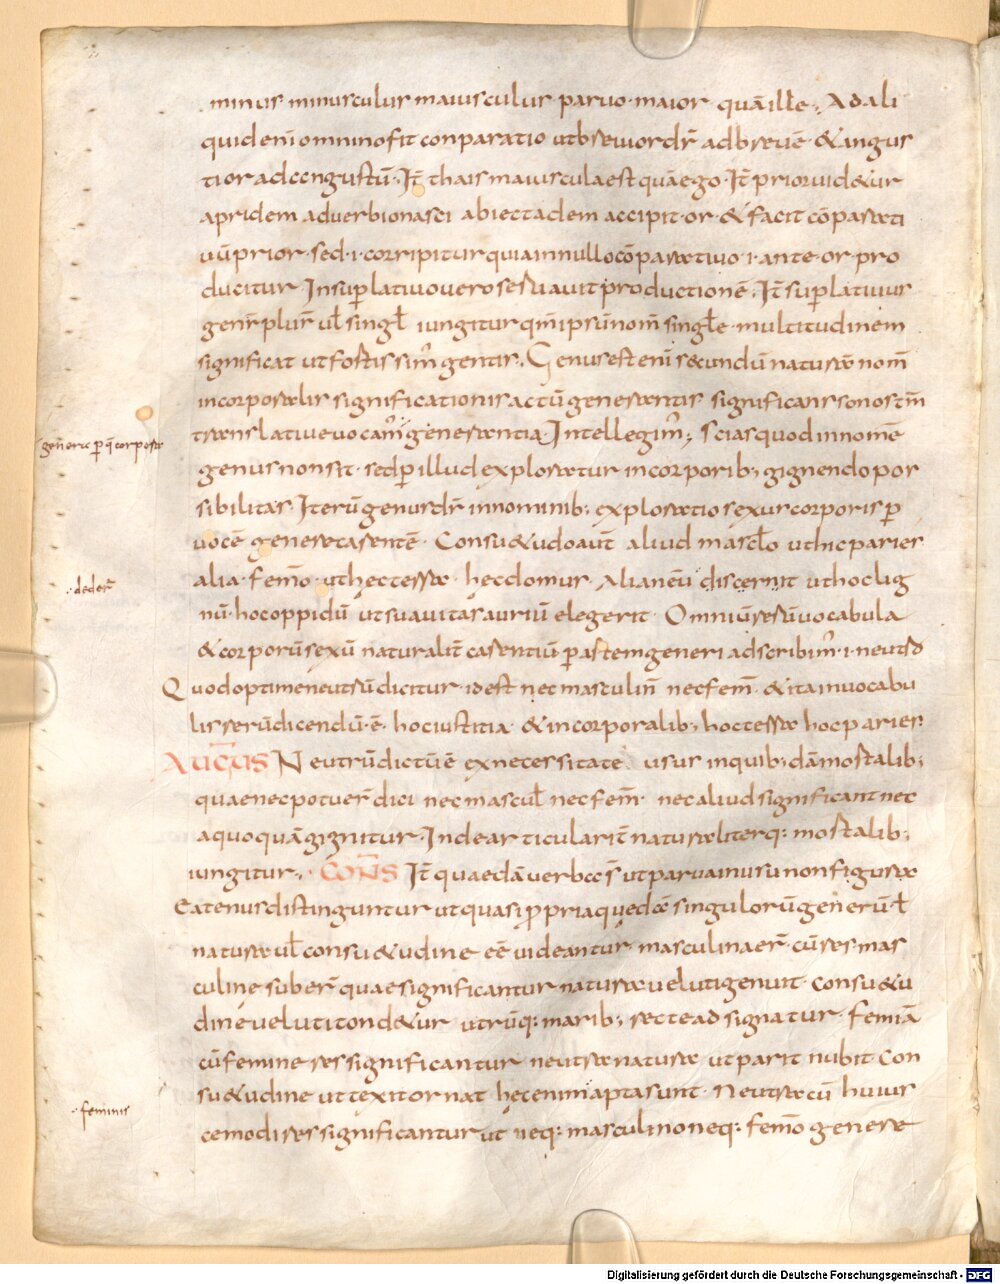 minus minusculus maiusculus parvo maior quā ille; Ad ali
quid enī omnino fit conparatio ut brevior dr̄ ad brevē & angus
tior ad congustū. It̄ thais maiuscula est quā ego. It̄ prior vid&ur
a pridem adverbio nasci abiecta dem accipit or & facit cōparati
vū prior sed i corripitur quia in nullo cōparativo i ante or pro
ducitur In sup̄lativo vero servavit productionē. It̄ sup̄lativus
gen̄r plur̄ vl̄ singl̄ iungitur qm̄ ipsū nom̄ singl̄e multitudinem
significat ut fortissim̄ gentis. Genus est enī secundū naturā nom̄
incorporalis significationis actū generantis significans sono stm̄
translative vocam̄ generantia Intellegim̄; Scias quod in nomē
genus non sit sed p̄ illud exploratur in corporib; gignendo pos
sibilitas. Iterū genus dr̄ in nominib; exploratio sexus corporis p̄
vocē genere casentē. Consu&udo aut̄ aliud mascl̄o ut hic paries
alia femō ut hec tessera hec domus alia neū discernit ut hoc lig
nū hoc oppidū ut suavitas auriū elegerit. Omniū rerū vocabula
& corporū sexū naturalit̄ casentiū p̄astem generi adscribim̄ i neutro
Quod optime neutrū dicitur id est nec masculin̄ nec fem̄ & ita in vocabu
lis rerū dicendū ē hoc iustitia & in corporalib; hoc tessera hoc paries
Neutrū dictū ē ex necessitate usus in quib;dā mortalib;
quae nec potuer̄ dici nec mascul̄ nec fem̄ nec aliud significant nec
a quoquā gignitur. Inde articularit̄ natura literq: mortalib;
iungitur. CONS It̄ quaedā verba s̄ ut parva in usu non figura
Eatenus distinguntur ut quasi p̄pria quedā singulorū generū l̄
natura vl̄ consu&udine eē videantur masculina er̄ cū res mas
culine suber̄ quae significantur natura veluti genuit consu&u
dine veluti tond&ur utrūq: marib; recte adsignatur. femiā
cū femine res significantur neutra natura ut parit nubit Con
su&udine ut texit ornat hec enim apta sunt. Neutra cū huius
cemodi res significantur ut neq: masculino neq: femō genere
gen̄era p̄ q̄ corpora
dedēr
feminis
Digitalisierung gefördert durch die Deutsche Forschungsgemeinschaft - DFG